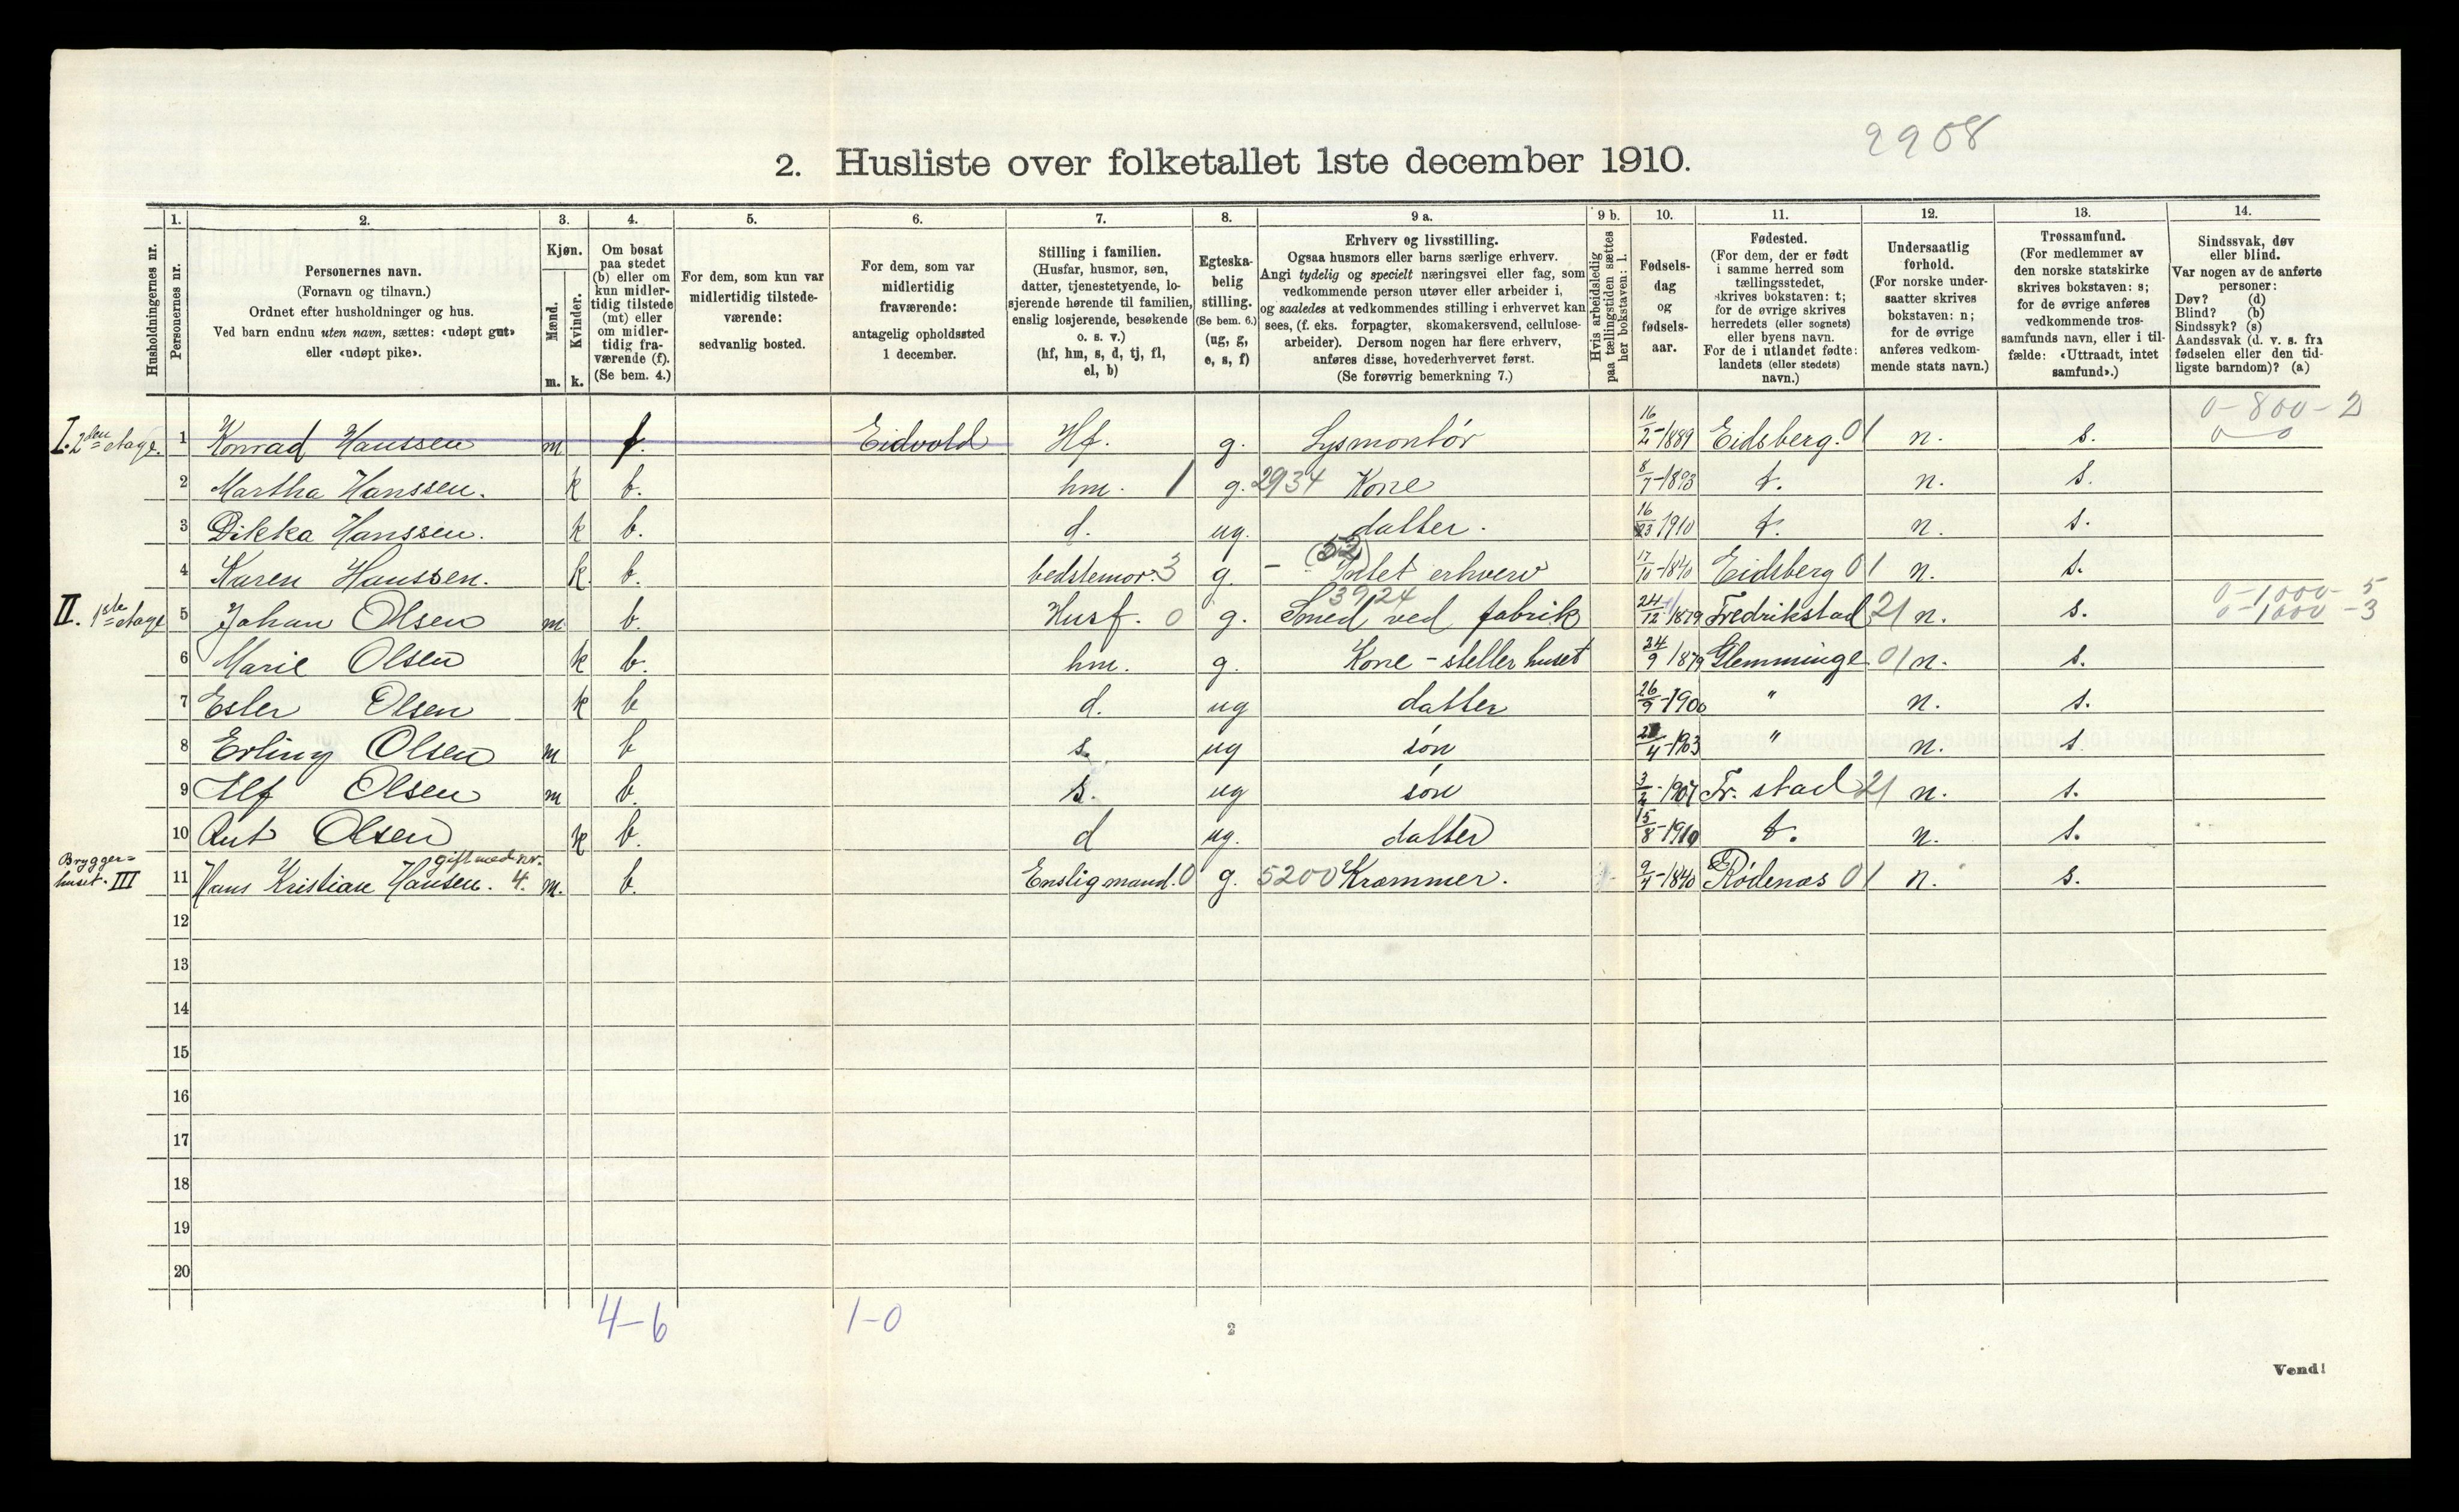 2908
2. Husliste over folketallet 1ste december 1910.
1. 2. 3. 4. 5. 6. 7. 8. 9 a. 9 b. 10. 11. 12. 13. 14.
Husholdningernes nr.
Personernes nr.
Personernes navn.
(Fornavn og tilnavn.)
Ordnet efter husholdninger og hus.
Ved barn endnu uten navn, sættes: «udøpt gut»
eller «udøpt pike».
Kjøn.
Mænd.
Kvinder.
m. k.
Om bosat
paa stedet
(b) eller om
kun midler-
tidig tilstede
(mt) eller
om midler-
tidig fra-
værende (f).
(Se bem. 4.)
For dem, som kun var
midlertidig tilstede-
værende:
sedvanlig bosted.
For dem, som var
midlertidig
fraværende:
antagelig opholdssted
1 december.
Stilling i familien.
(Husfar, husmor, søn,
datter, tjenestetyende, lo-
sjerende hørende til familien,
enslig losjerende, besøkende
o. s. v.)
(hf, hm, s, d, tj, fl,
el, b)
Egteska-
belig
stilling.
(Se bem. 6.)
(ug, g,
e, s, f)
Erhverv og livsstilling.
Ogsaa husmors eller barns særlige erhverv.
Angi tydelig og specielt næringsvei eller fag, som
vedkommende person utøver eller arbeider i,
og saaledes at vedkommendes stilling i erhvervet kan
sees, (f. eks. forpagter, skomakersvend, cellulose-
arbeider). Dersom nogen har flere erhverv,
anføres disse, hovederhvervet først.
(Se forøvrig bemerkning 7.)
Hvis arbeidsledig
paa tællingstiden sættes
her bokstaven: l.
Fødsels-
dag
og
fødsels-
aar.
Fødested.
(For dem, der er født
i samme herred som
tællingsstedet,
skrives bokstaven: t;
for de øvrige skrives
herredets (eller sognets)
eller byens navn.
For de i utlandet fødte:
landets (eller stedets)
navn.)
Undersaatlig
forhold.
(For norske under-
saatter skrives
bokstaven: n;
for de øvrige
anføres vedkom-
mende stats navn.)
Trossamfund.
(For medlemmer av
den norske statskirke
skrives bokstaven: s;
for de øvrige anføres
vedkommende tros-
samfunds navn, eller i til-
fælde: «Uttraadt, intet
samfund».)
Sindssvak, døv
eller blind.
Var nogen av de anførte
personer:
Døv? (d)
Blind? (b)
Sindssyk? (s)
Aandssvak (d. v. s. fra
fødselen eller den tid-
ligste barndom)? (a)
0-800-2
I. 2den etage. 1 Konrad Hanssen m f. Eidvold Hf. g. Lysmontør 16/2-1889 Eidsberg. 01 n. s. 0 0
2 Martha Hanssen. k b. hm. 1 g. 2934 Kone 8/7-1893 t. n. s.
3 Dikka Hanssen. k b. d. ug. datter. 1910 t. n. s.
4 Karen Hanssen. k. b. bedstemor. 3 g. - (52) Intet erhverv 17/10-1840 Eidsberg 01 n. s.
0-1000-5
II. 1ste etage 5 Johan Olsen m b. Husf. 0 g. 3924 Smed ved fabrik 24/12 1879 Fredrikstad 21 n. s. 0-1000-3
6 Marie Olsen k b. hm. g. Kone - steller huset 24/9 1879 Glemminge 01 n. s.
7 Ester Olsen k b d. ug datter 26/9-1900 " n. s.
8 Erling Olsen m b s. ug søn 1903 " n. s.
9 Alf Olsen m b. s. ug søn 3/2-1907 Fr. stad 21 n. s.
10 Rut Olsen k b. d ug. datter 15/8-1910 t. n. s.
Brygger=
huset. III 11 Hans Kristian Hansen. gift med nr. 4. m. b. Enslig mand. 0 g. 5200 Kræmmer. 9/4-1840 Rødenæs 01 n. s.
12
13
14
15
16
17
18
19
20
4-6 1-0
2
Vend!